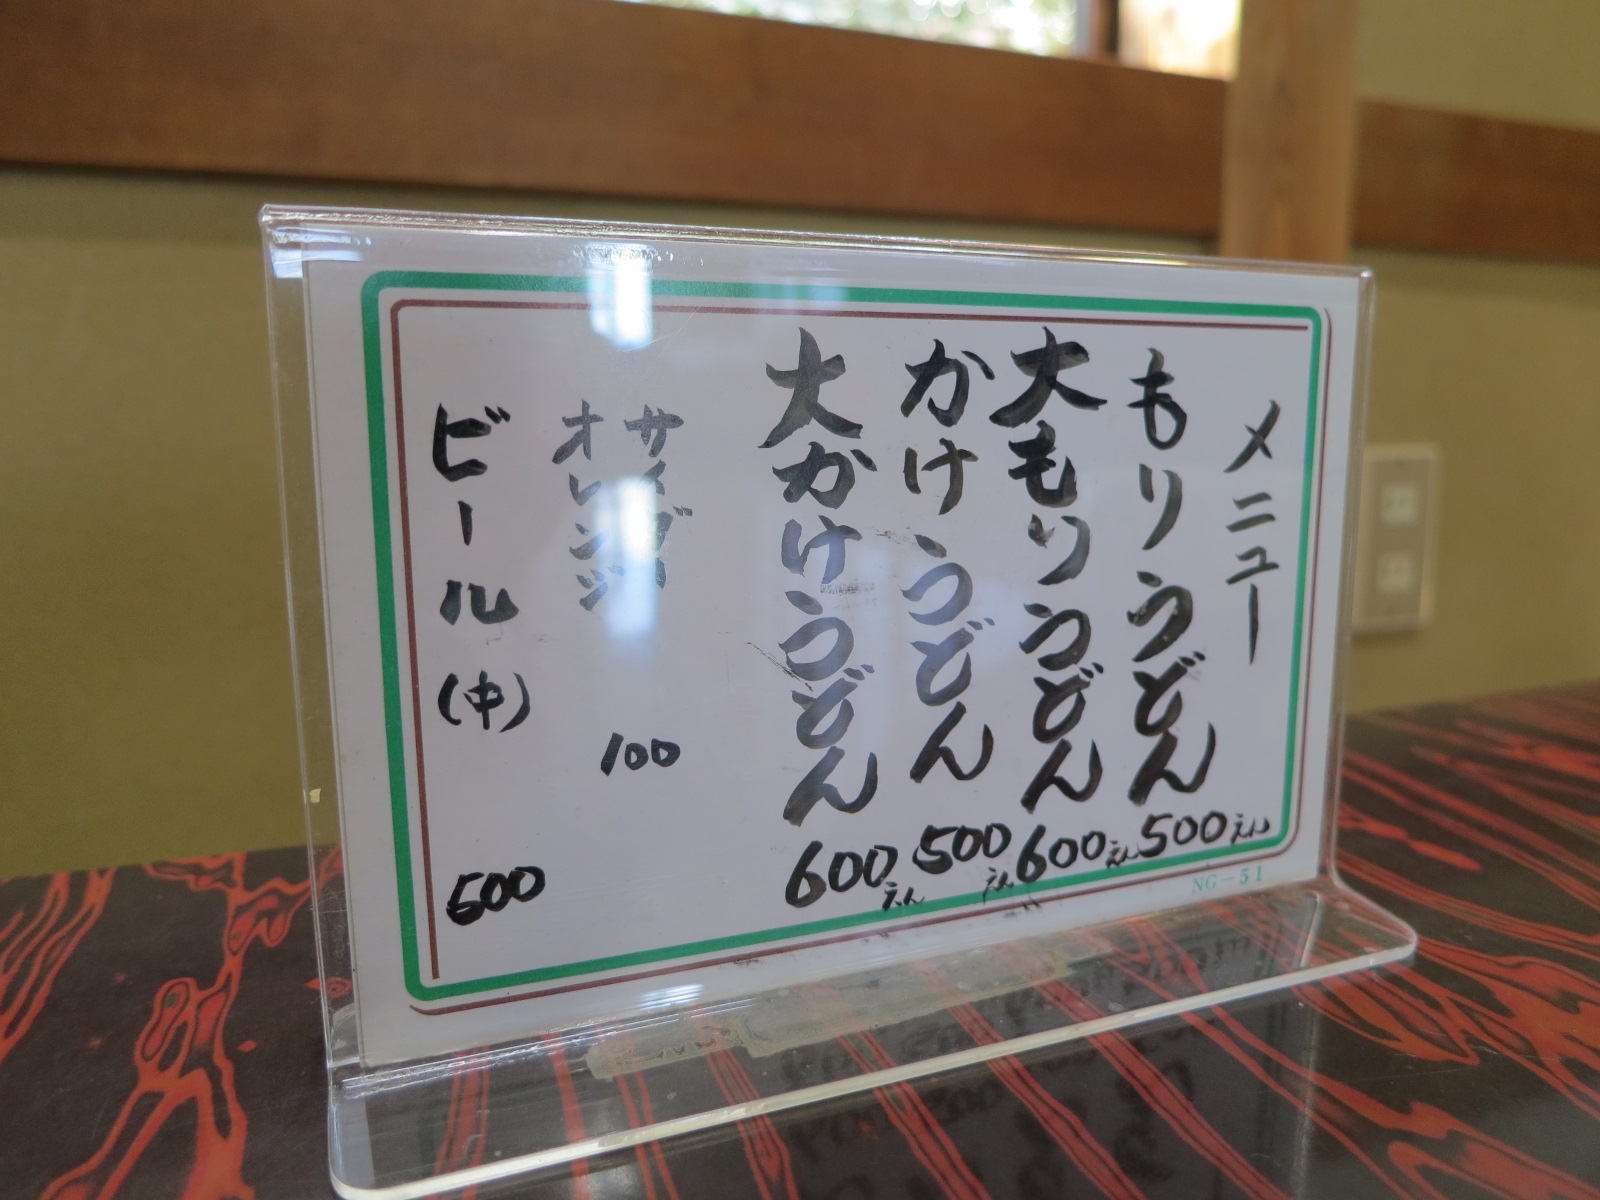 メニュー
もりうどん 500えん
大もりうどん 600えん
かけうどん 500えん
大かけうどん 600えん
サイダー
オレンジ
100
ビール(中) 500
NG-51